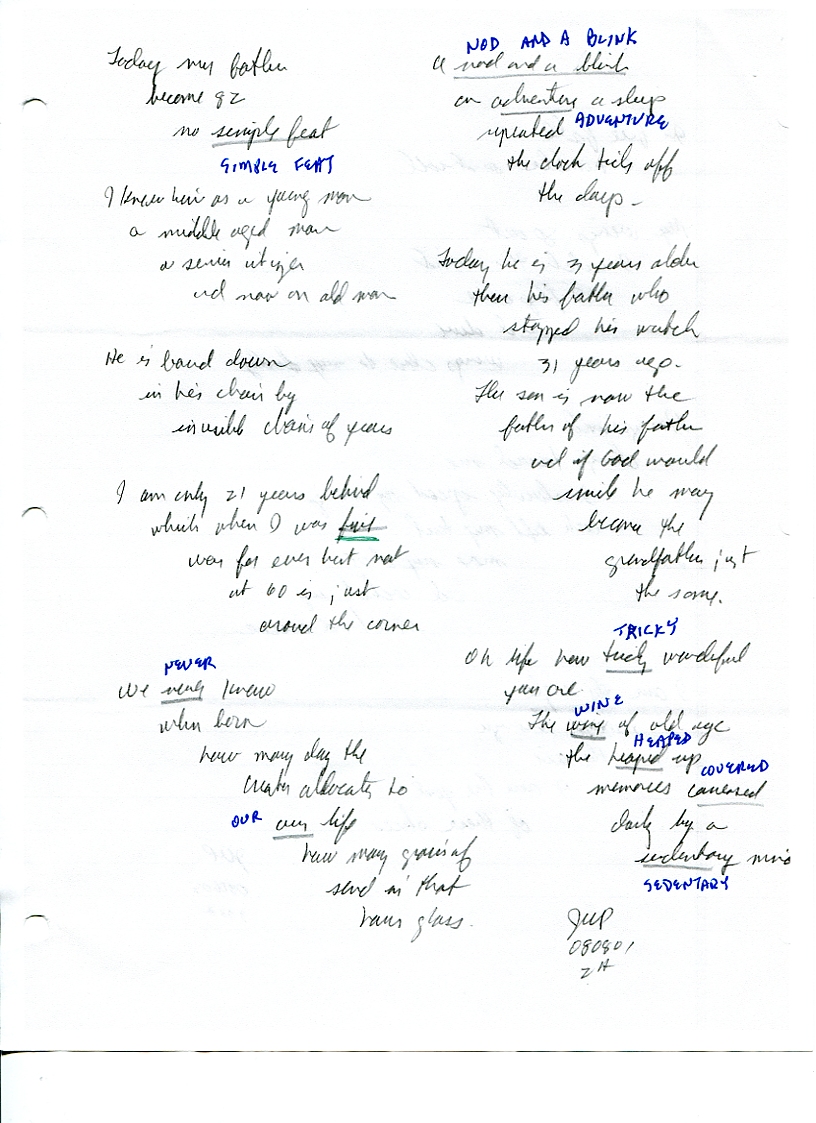 Today my father
become 82
no simple feat
SIMBLE FEAT
I knew him as a young man
a middle aged man
a senior citizen
and now an old man
He is bound down
in his chair by
invisible chains of years
I am only 21 years behind
which when I was five
was for ever but not
at 60 is just
around the corner
NEVER
We never know
when born
how many day the
Creator allocates to
OUR our life
how many grains of
sand in that
hour glass.
NOD AND A BLINK
a nod and a blink
an adventure a sleep
repeated ADVENTURE
the clock ticks off
the days -
Today he is 3 years older
then his father who
stopped his watch
31 years ago.
The son is now the
father of his father
and if God would
smile he may
become the
grandfather just
the same.
TRICKY
Oh life how tricky wonderful
you are
WINE
The wine of old age
HEAPED
the heaped up
COVERED
memories covered
daily by a
sedentary mind
SEDENTARY
JWP
080801
2H